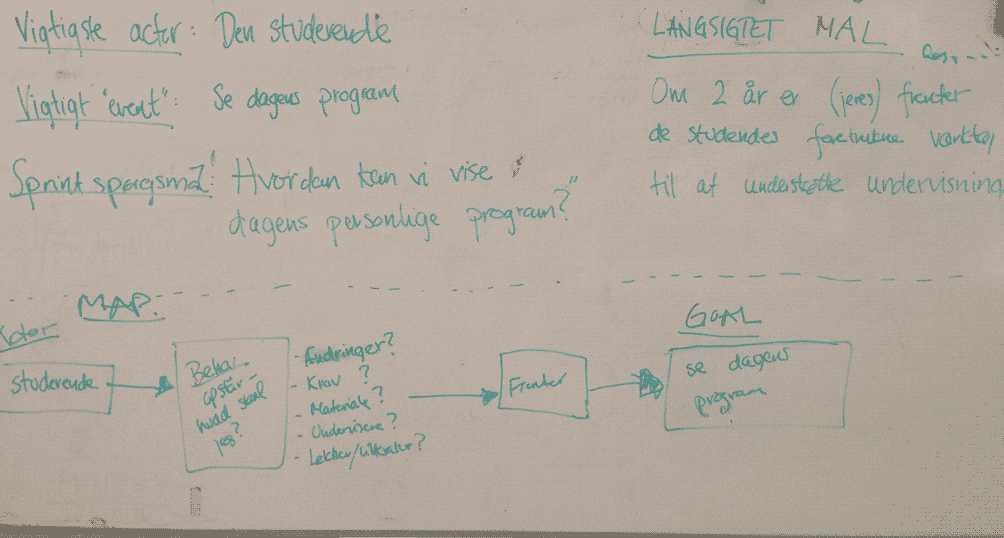 Vigtigste actor: Den studerende
Vigtigt "event": Se dagens program
Sprint spørgsmål: "Hvordan kan vi vise
dagens personlige program?"
LANGSIGTET MÅL
Om 2 år er (jeres) fronter
de studendes foretrukne værktøj
til at understøtte undervisning
MAP:
studerende
Behov
opstår -
hvad skal
jeg?
- Ændringer?
- Krav ?
- Materiale?
- Undervisere?
- Lektier/litteratur?
Fronter
GOAL
se dagens
program